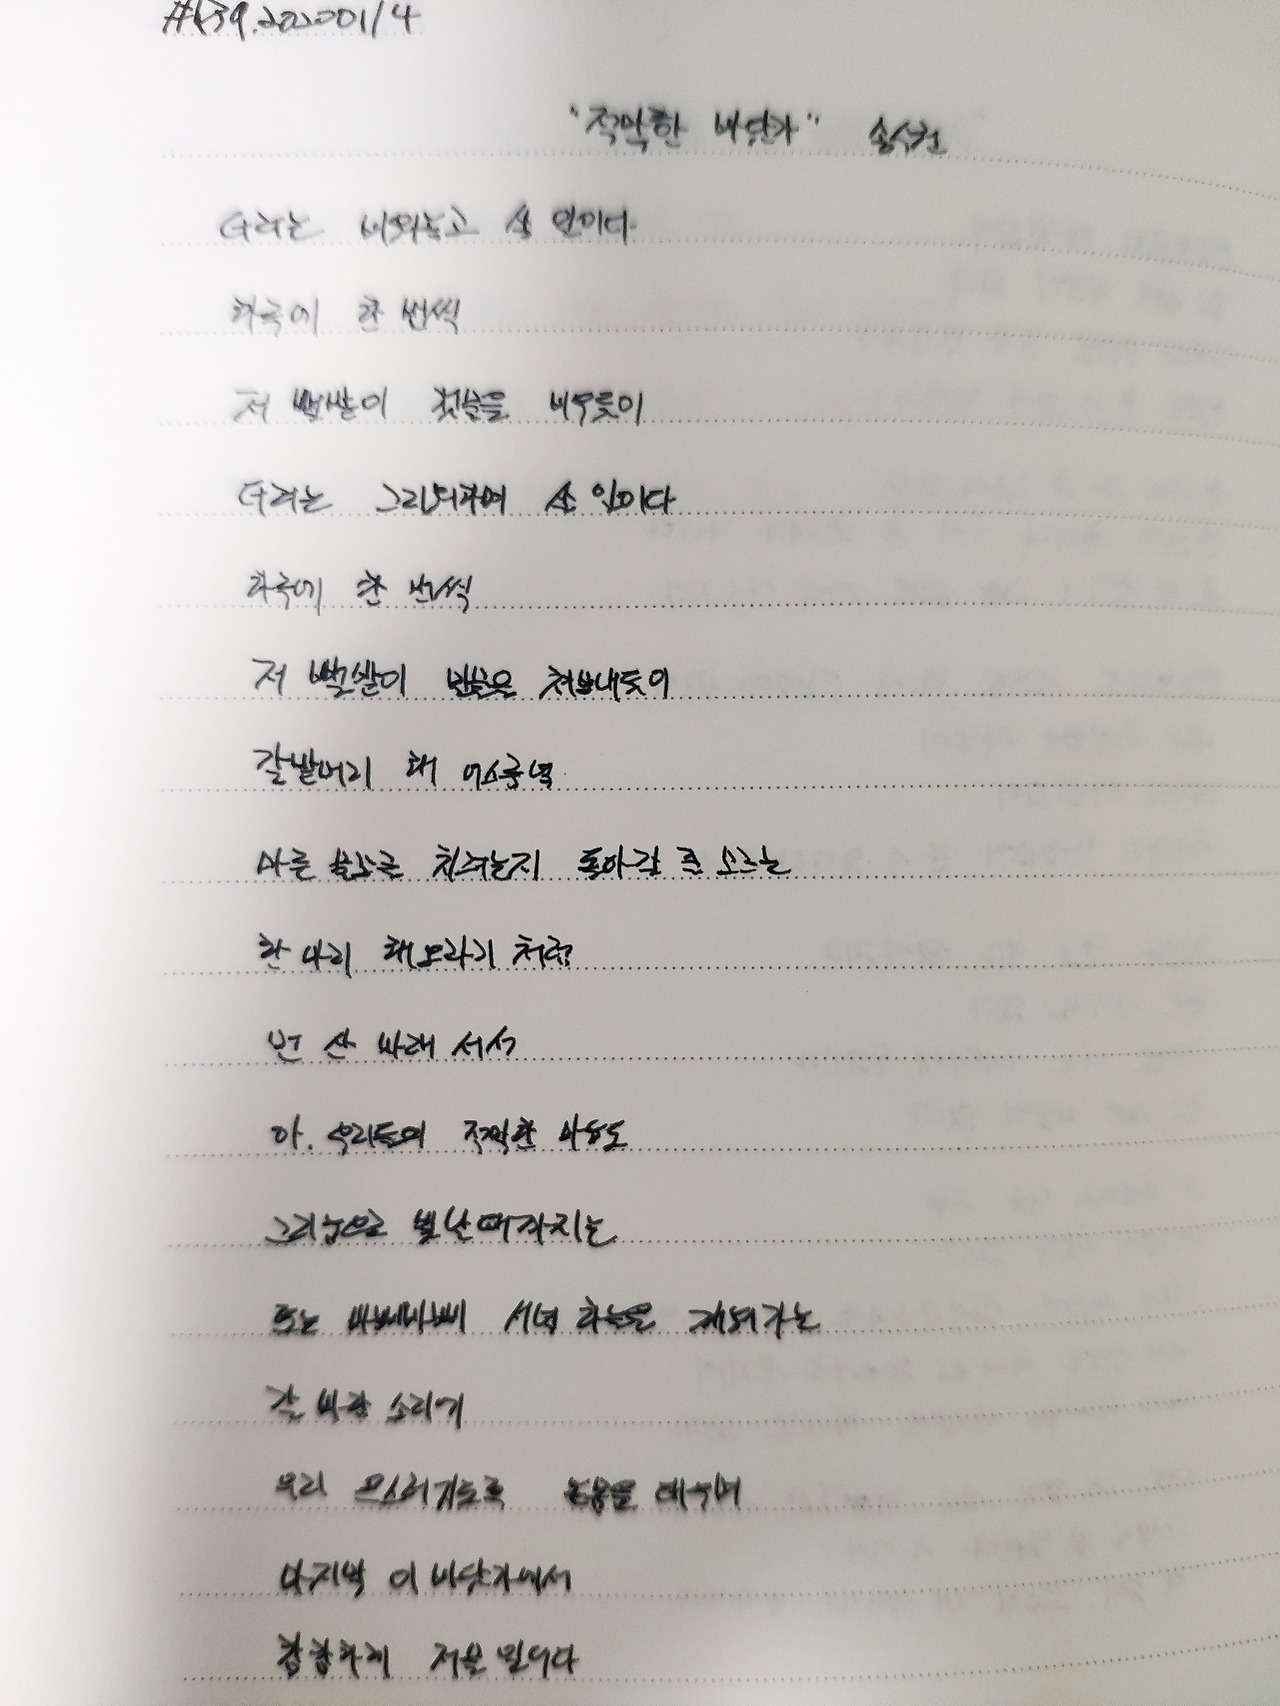 "적막한 바닷가" 송수권
더러는 비워놓고 살 일이다
하루에 한 번씩
저 뻘밭이 갯물을 비우듯이
더러는 그리워하며 살 일이다
하루에 한 번씩
저 뻘밭이 밀물을 쳐보내듯이
갈밭머리 해 어스름녘
마른 물꼬를 치려는지 돌아갈 줄 모르는
한 마리 해오라기 처럼
먼 산 바래 서서
아, 우리들의 적막한 마음도
그리움으로 빛날 때까지는
또는 바삐바삐 서녘 하늘을 채워가는
갈 바람 소리에
우리 으스러지도록 온몸을 태우며
마지막 이 바닷가에서
캄캄하게 저물 일이다